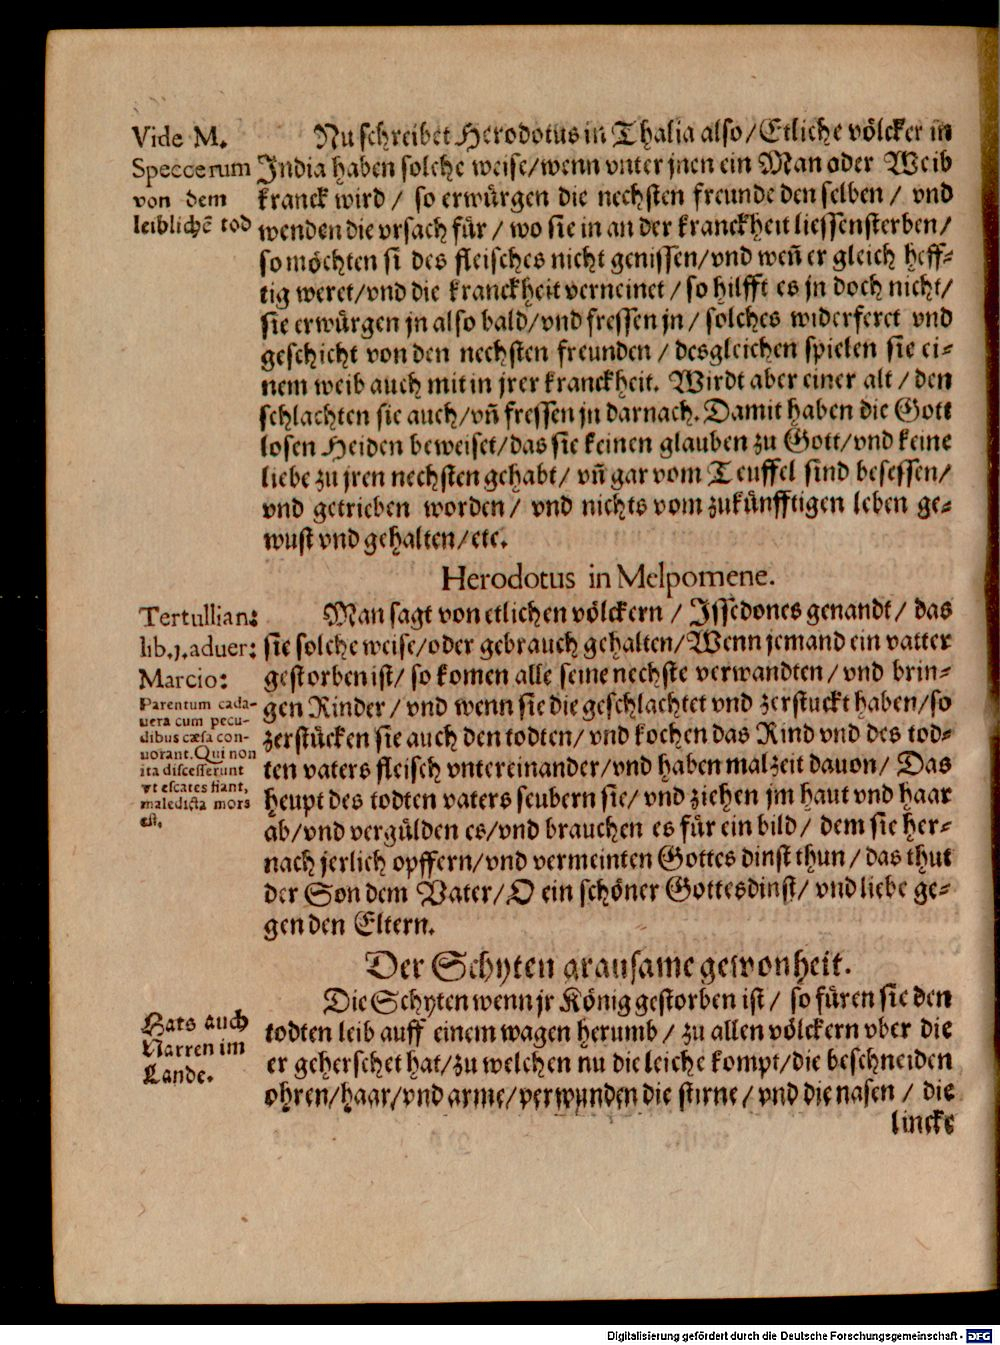 Vide M.
Speccerum
von dem
leiblichē tod
Nu schreibet Herodotus in Thalia also / Etliche völcker in
India haben solche weise / wenn vnter jnen ein Man oder Weib
kranck wird / so erwürgen die nechsten freunde den selben / vnd
wenden die vrsach für / wo sie in an der kranckheit liessen sterben /
so möchten si des fleisches nicht genissen / vnd weñ er gleich heff-
tig weret / vnd die kranckheit verneinet / so hilfft es jn doch nicht /
sie erwürgen jn also bald / vnd fressen jn / solches widerferet vnd
geschicht von den nechsten freunden / desgleichen spielen sie ei-
nem weib auch mit in jrer kranckheit. Wirdt aber einer alt / den
schlachten sie auch / vñ fressen jn darnach. Damit haben die Gott
losen Heiden beweiset / das sie keinen glauben zu Gott / vnd keine
liebe zu jren nechsten gehabt / vñ gar vom Teuffel sind besessen /
vnd getrieben worden / vnd nichts vom zukünfftigen leben ge-
wust vnd gehalten / etc.
Herodotus in Melpomene.
Tertullian:
lib.1.aduer:
Marcio:
Parentum cada-
uera cum pecu-
dibus cæsa con-
uorant. Qui non
ita discesserunt
vt escates fiant,
maledicta mors
est.
Man sagt von etlichen völckern / Issedones genandt / das
sie solche weise / oder gebrauch gehalten / Wenn jemand ein vatter
gestorben ist / so komen alle seine nechste verwandten / vnd brin-
gen Rinder / vnd wenn sie die geschlachtet vnd zerstuckt haben / so
zerstücken sie auch den todten / vnd kochen das Rind vnd des tod-
ten vaters fleisch vntereinander / vnd haben malzeit dauon / Das
heupt des todten vaters seubern sie / vnd ziehen jm haut vnd haar
ab / vnd vergülden es / vnd brauchen es für ein bild / dem sie her-
nach jerlich opffern / vnd vermeinten Gottes dinst thun / das thut
der Son dem Vater / O ein schöner Gottesdinst / vnd liebe ge-
gen den Eltern.
Der Schyten grausame gewonheit.
Hats auch
Narren im
Lande.
Die Schyten wenn jr König gestorben ist / so füren sie den
todten leib auff einem wagen herumb / zu allen völckern vber die
er geherschet hat / zu welchen nu die leiche kompt / die beschneiden
ohren / haar / vnd arme / verwunden die stirne / vnd die nasen / die
lincke
Digitalisierung gefördert durch die Deutsche Forschungsgemeinschaft - DFG